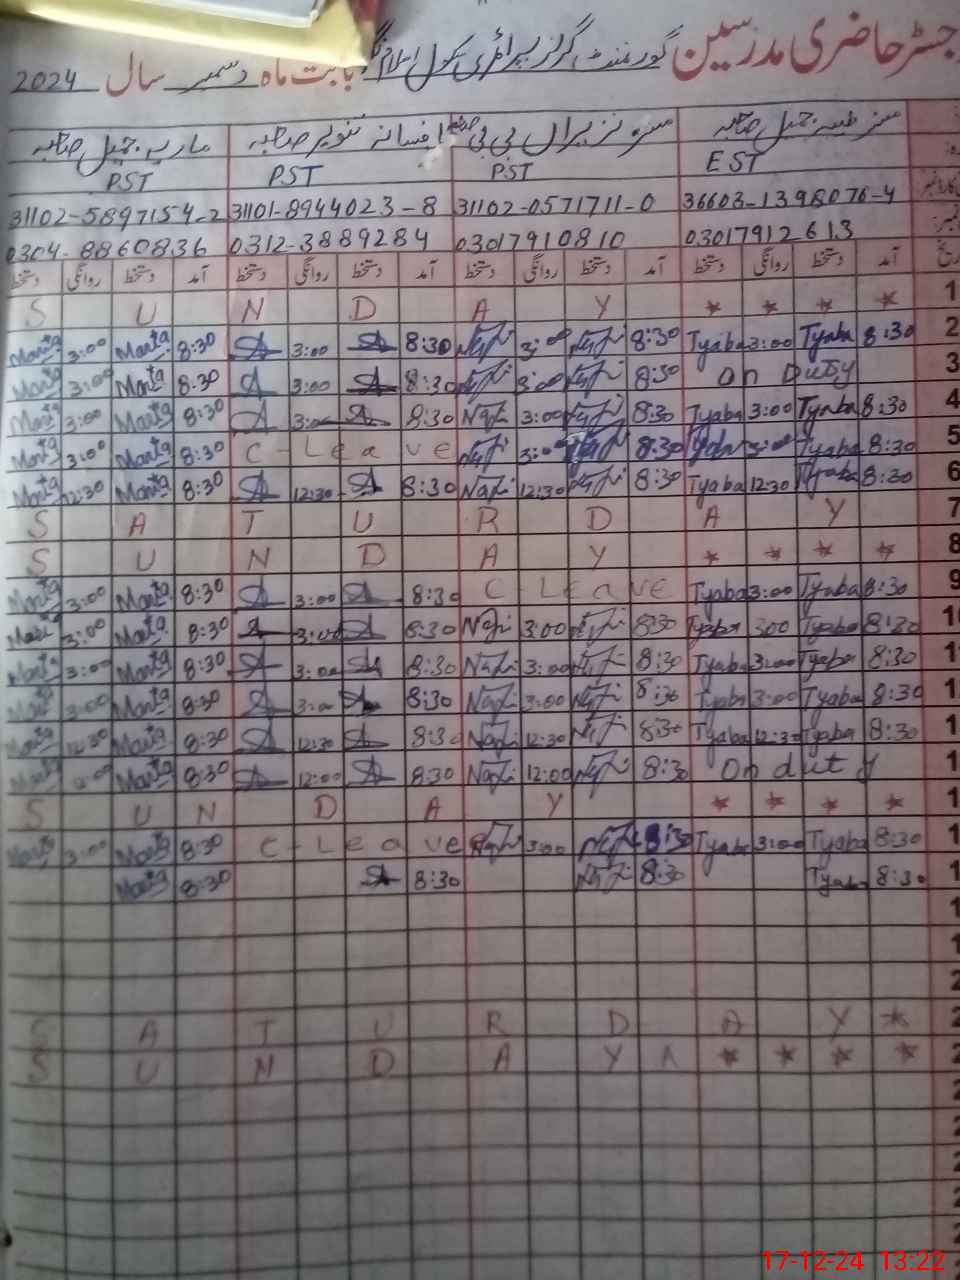 رجسٹر حاضری مدرسین گورنمنٹ گرلز پرائمری سکول اسلام بابت ماہ دسمبر سال 2024
مسز طیبہ جمیل صاحبہ مسز نزیراں بی بی صاحبہ افسانہ تنویر صاحبہ ماریہ جمیل صاحبہ
EST PST PST PST
36603-1398076-4 31102-0571711-0 31101-8944023-8 31102-5897154-2
03017912613 03017910810 0312-3889284 0304-8860836
آمد دستخط روانگی دستخط آمد دستخط روانگی دستخط آمد دستخط روانگی دستخط آمد دستخط روانگی دستخط
S U N D A Y * * * * 1
Maria 3:00 Maria 8:30 3:00 8:30 Nazi 3:00 Nazi 8:30 Tyaba 3:00 Tyaba 8:30 2
Maria 3:00 Maria 8:30 3:00 8:30 Nazi 3:00 Nazi 8:30 on Duty 3
Maria 3:00 Maria 8:30 3:00 8:30 Nazi 3:00 Nazi 8:30 Tyaba 3:00 Tyaba 8:30 4
Maria 3:00 Maria 8:30 C-Leave Nazi 3:00 Nazi 8:30 Tyaba 3:00 Tyaba 8:30 5
Maria 12:30 Maria 8:30 12:30 8:30 Nazi 12:30 Nazi 8:30 Tyaba 12:30 Tyaba 8:30 6
S A T U R D A Y 7
S U N D A Y * * * * 8
Maria 3:00 Maria 8:30 3:00 8:30 C-Leave Tyaba 3:00 Tyaba 8:30 9
Maria 3:00 Maria 8:30 3:00 8:30 Nazi 3:00 Nazi 8:30 Tyaba 3:00 Tyaba 8:30
Maria 3:00 Maria 8:30 3:00 8:30 Nazi 3:00 Nazi 8:30 Tyaba 3:00 Tyaba 8:30
Maria 3:00 Maria 8:30 3:00 8:30 Nazi 3:00 Nazi 8:30 Tyaba 3:00 Tyaba 8:30
Maria 12:30 Maria 8:30 12:30 8:30 Nazi 12:30 Nazi 8:30 Tyaba 12:30 Tyaba 8:30
Maria 12:00 Maria 8:30 12:00 8:30 Nazi 12:00 Nazi 8:30 On duty
S U N D A Y * * * *
Maria 3:00 Maria 8:30 C-Leave Nazi 3:00 Nazi 8:30 Tyaba 3:00 Tyaba 8:30
Maria 8:30 8:30 Nazi 8:30 Tyaba 8:30
S A T U R D A Y *
S U N D A Y * * * *
17-12-24 13:22